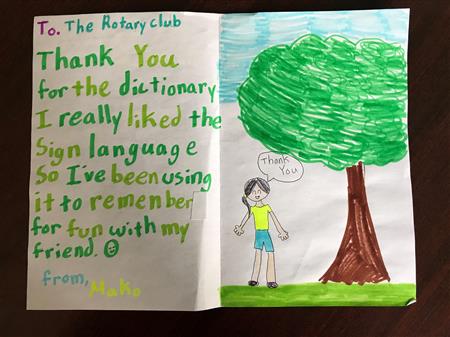 To. The Rotary club
Thank You
for the dictionary
I really liked the
Sign language
So I've been using
it to remenber
for fun with my
friend. ☺
from,
Mako
Thank
You